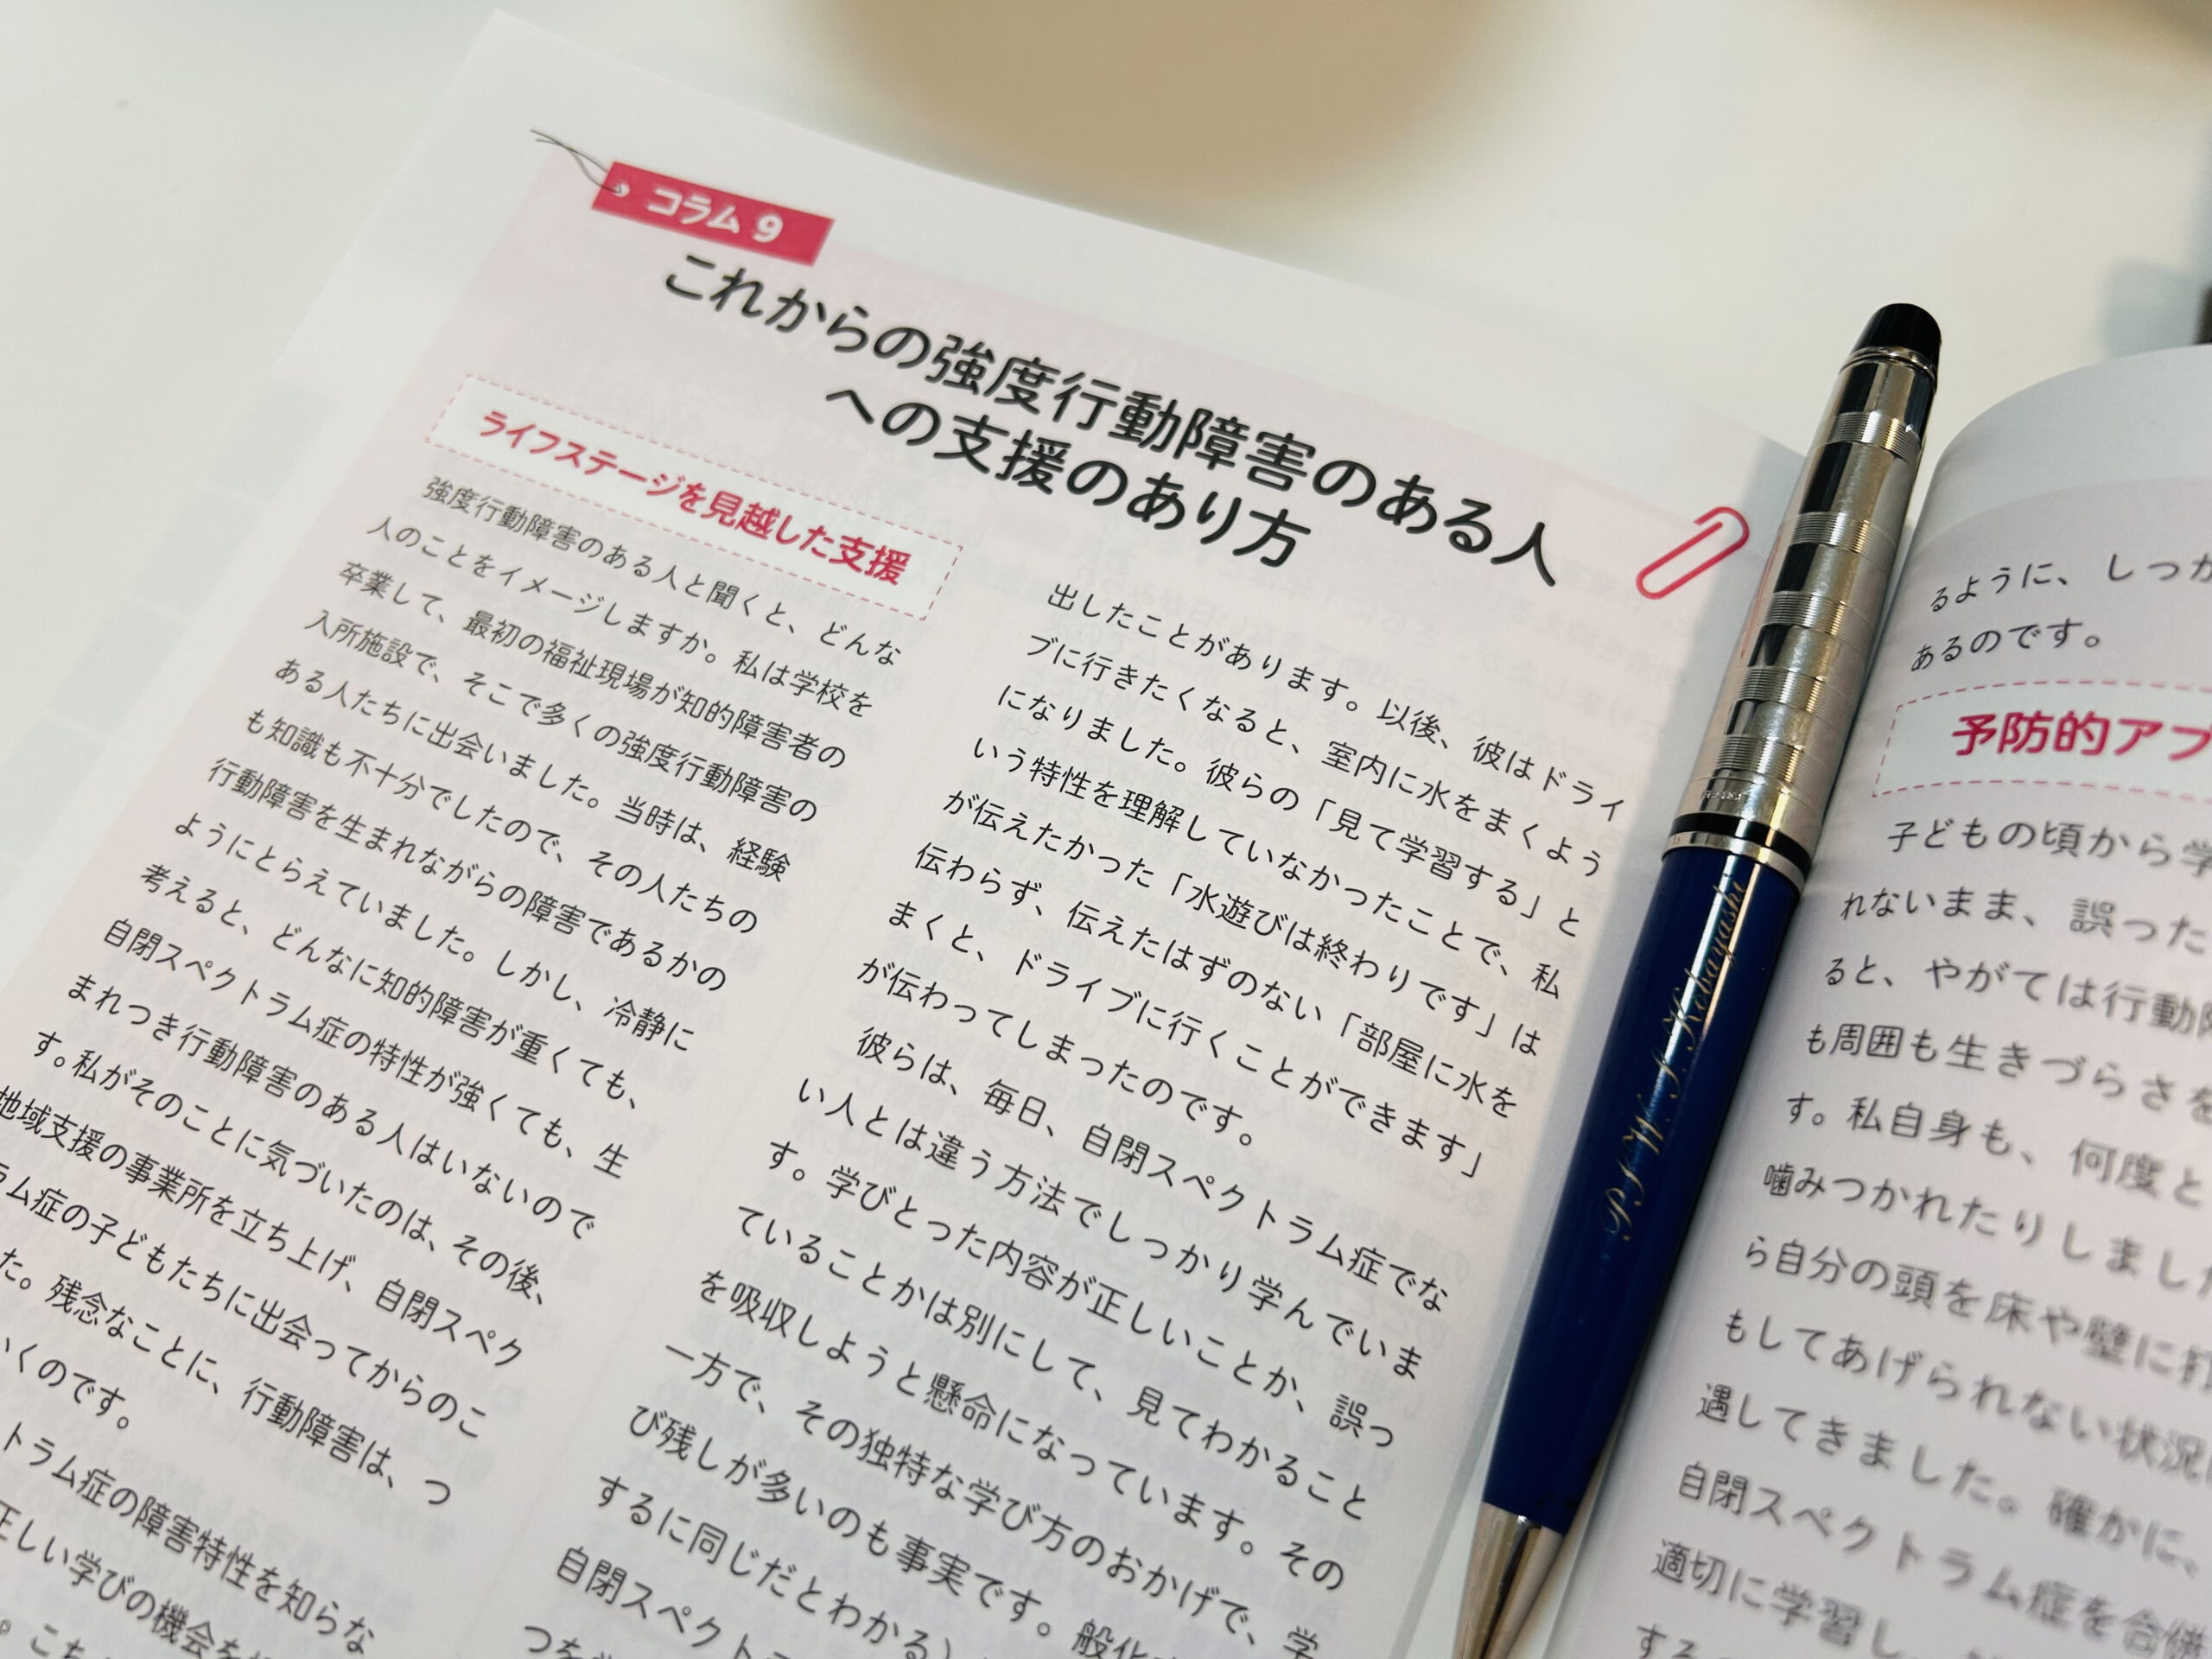 コラム 9
これからの強度行動障害のある人
への支援のあり方
ライフステージを見越した支援
強度行動障害のある人と聞くと、どんな
人のことをイメージしますか。私は学校を
卒業して、最初の福祉現場が知的障害者の
入所施設で、そこで多くの強度行動障害の
ある人たちに出会いました。当時は、経験
も知識も不十分でしたので、その人たちの
行動障害を生まれながらの障害であるかの
ようにとらえていました。しかし、冷静に
考えると、どんなに知的障害が重くても、
自閉スペクトラム症の特性が強くても、生
まれつき行動障害のある人はいないので
す。私がそのことに気づいたのは、その後、
地域支援の事業所を立ち上げ、自閉スペク
ラム症の子どもたちに出会ってからのこ
た。残念なことに、行動障害は、つ
いくのです。
トラム症の障害特性を知らな
正しい学びの機会を
。こち
出したことがあります。以後、彼はドライ
ブに行きたくなると、室内に水をまくよう
になりました。彼らの「見て学習する」と
いう特性を理解していなかったことで、私
が伝えたかった「水遊びは終わりです」は
伝わらず、伝えたはずのない「部屋に水を
まくと、ドライブに行くことができます」
が伝わってしまったのです。
彼らは、毎日、自閉スペクトラム症でな
い人とは違う方法でしっかり学んでいま
す。学びとった内容が正しいことか、誤っ
ていることかは別にして、見てわかること
を吸収しようと懸命になっています。その
一方で、その独特な学び方のおかげで、学
び残しが多いのも事実です。般化
するに同じだとわかる）
自閉スペクトラ
つを
るように、しっか
あるのです。
予防的アプ
子どもの頃から学
れないまま、誤った
ると、やがては行動
も周囲も生きづらさを
す。私自身も、何度と
噛みつかれたりしました
ら自分の頭を床や壁に打
もしてあげられない状況
遇してきました。確かに、
自閉スペクトラム症を合併
適切に学習し
する
P.S.W. S. Kobayashi